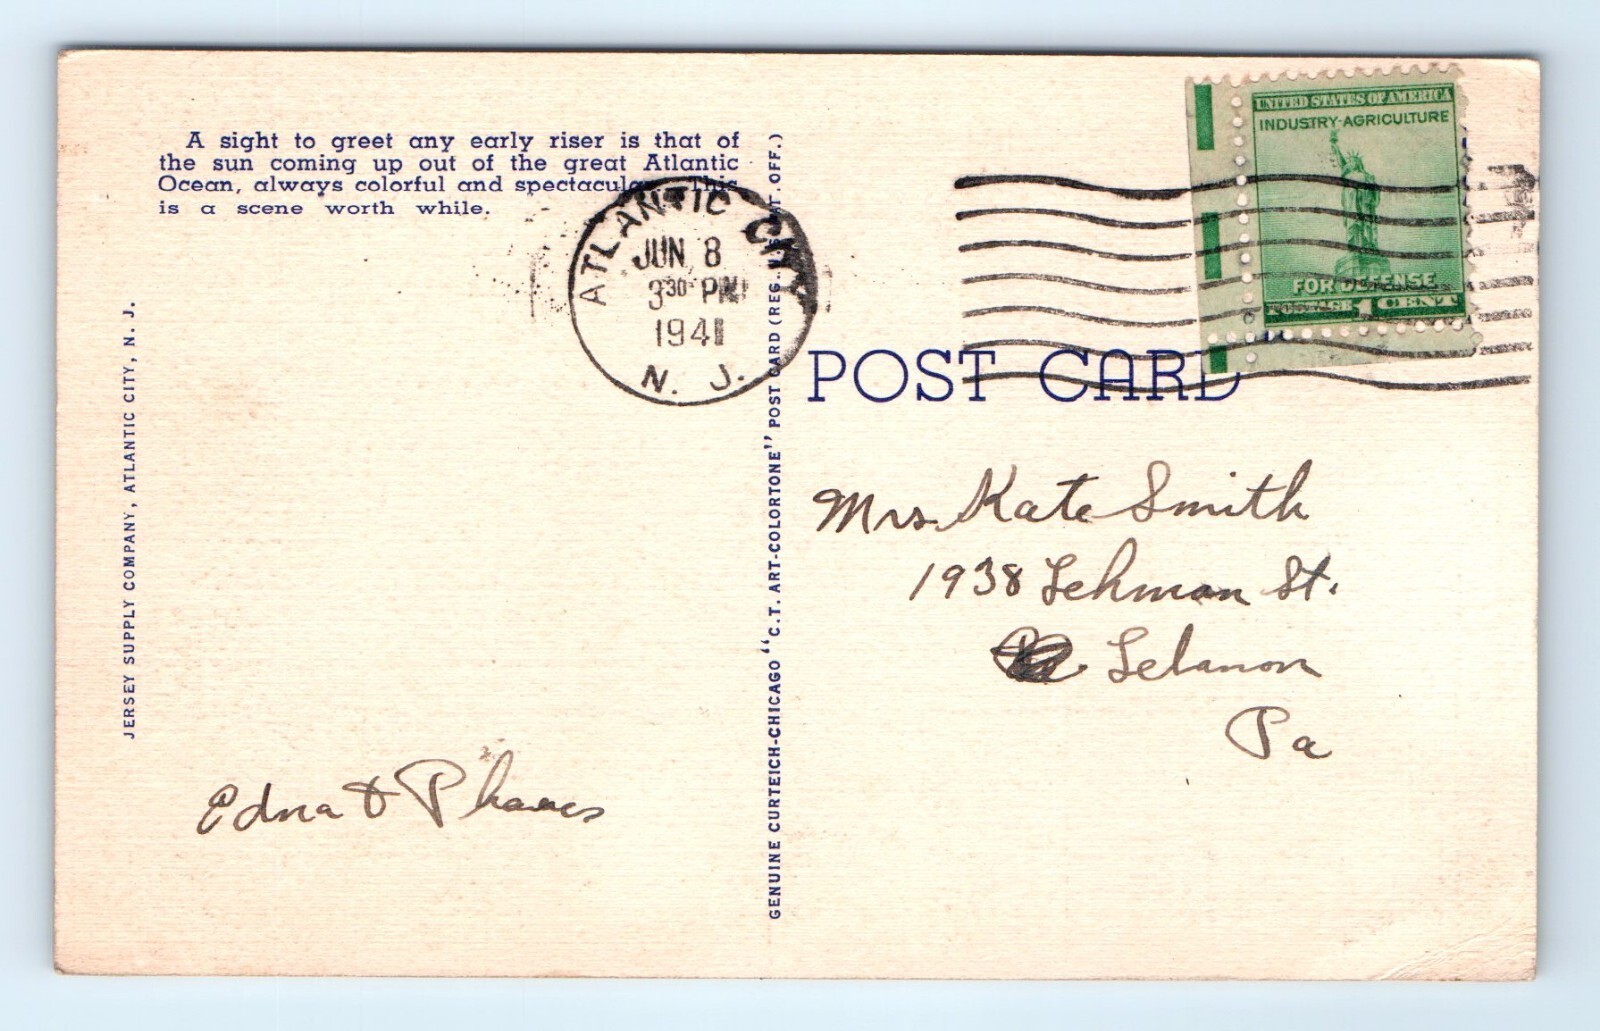 A sight to greet any early riser is that of
the sun coming up out of the great Atlantic
Ocean, always colorful and spectacular. This
is a scene worth while.
JERSEY SUPPLY COMPANY, ATLANTIC CITY, N. J.
Edna &
ATLANTIC CITY
JUN 8
3 30 PM
1941
N. J.
GENUINE CURTEICH-CHICAGO "C.T. ART-COLORTONE" POST CARD (REG. U.S. PAT. OFF.)
UNITED STATES OF AMERICA
INDUSTRY-AGRICULTURE
FOR DEFENSE
POSTAGE 1 CENT
POST CARD
Mrs. Kate Smith
1938 Lehman St.
Lebanon
Pa